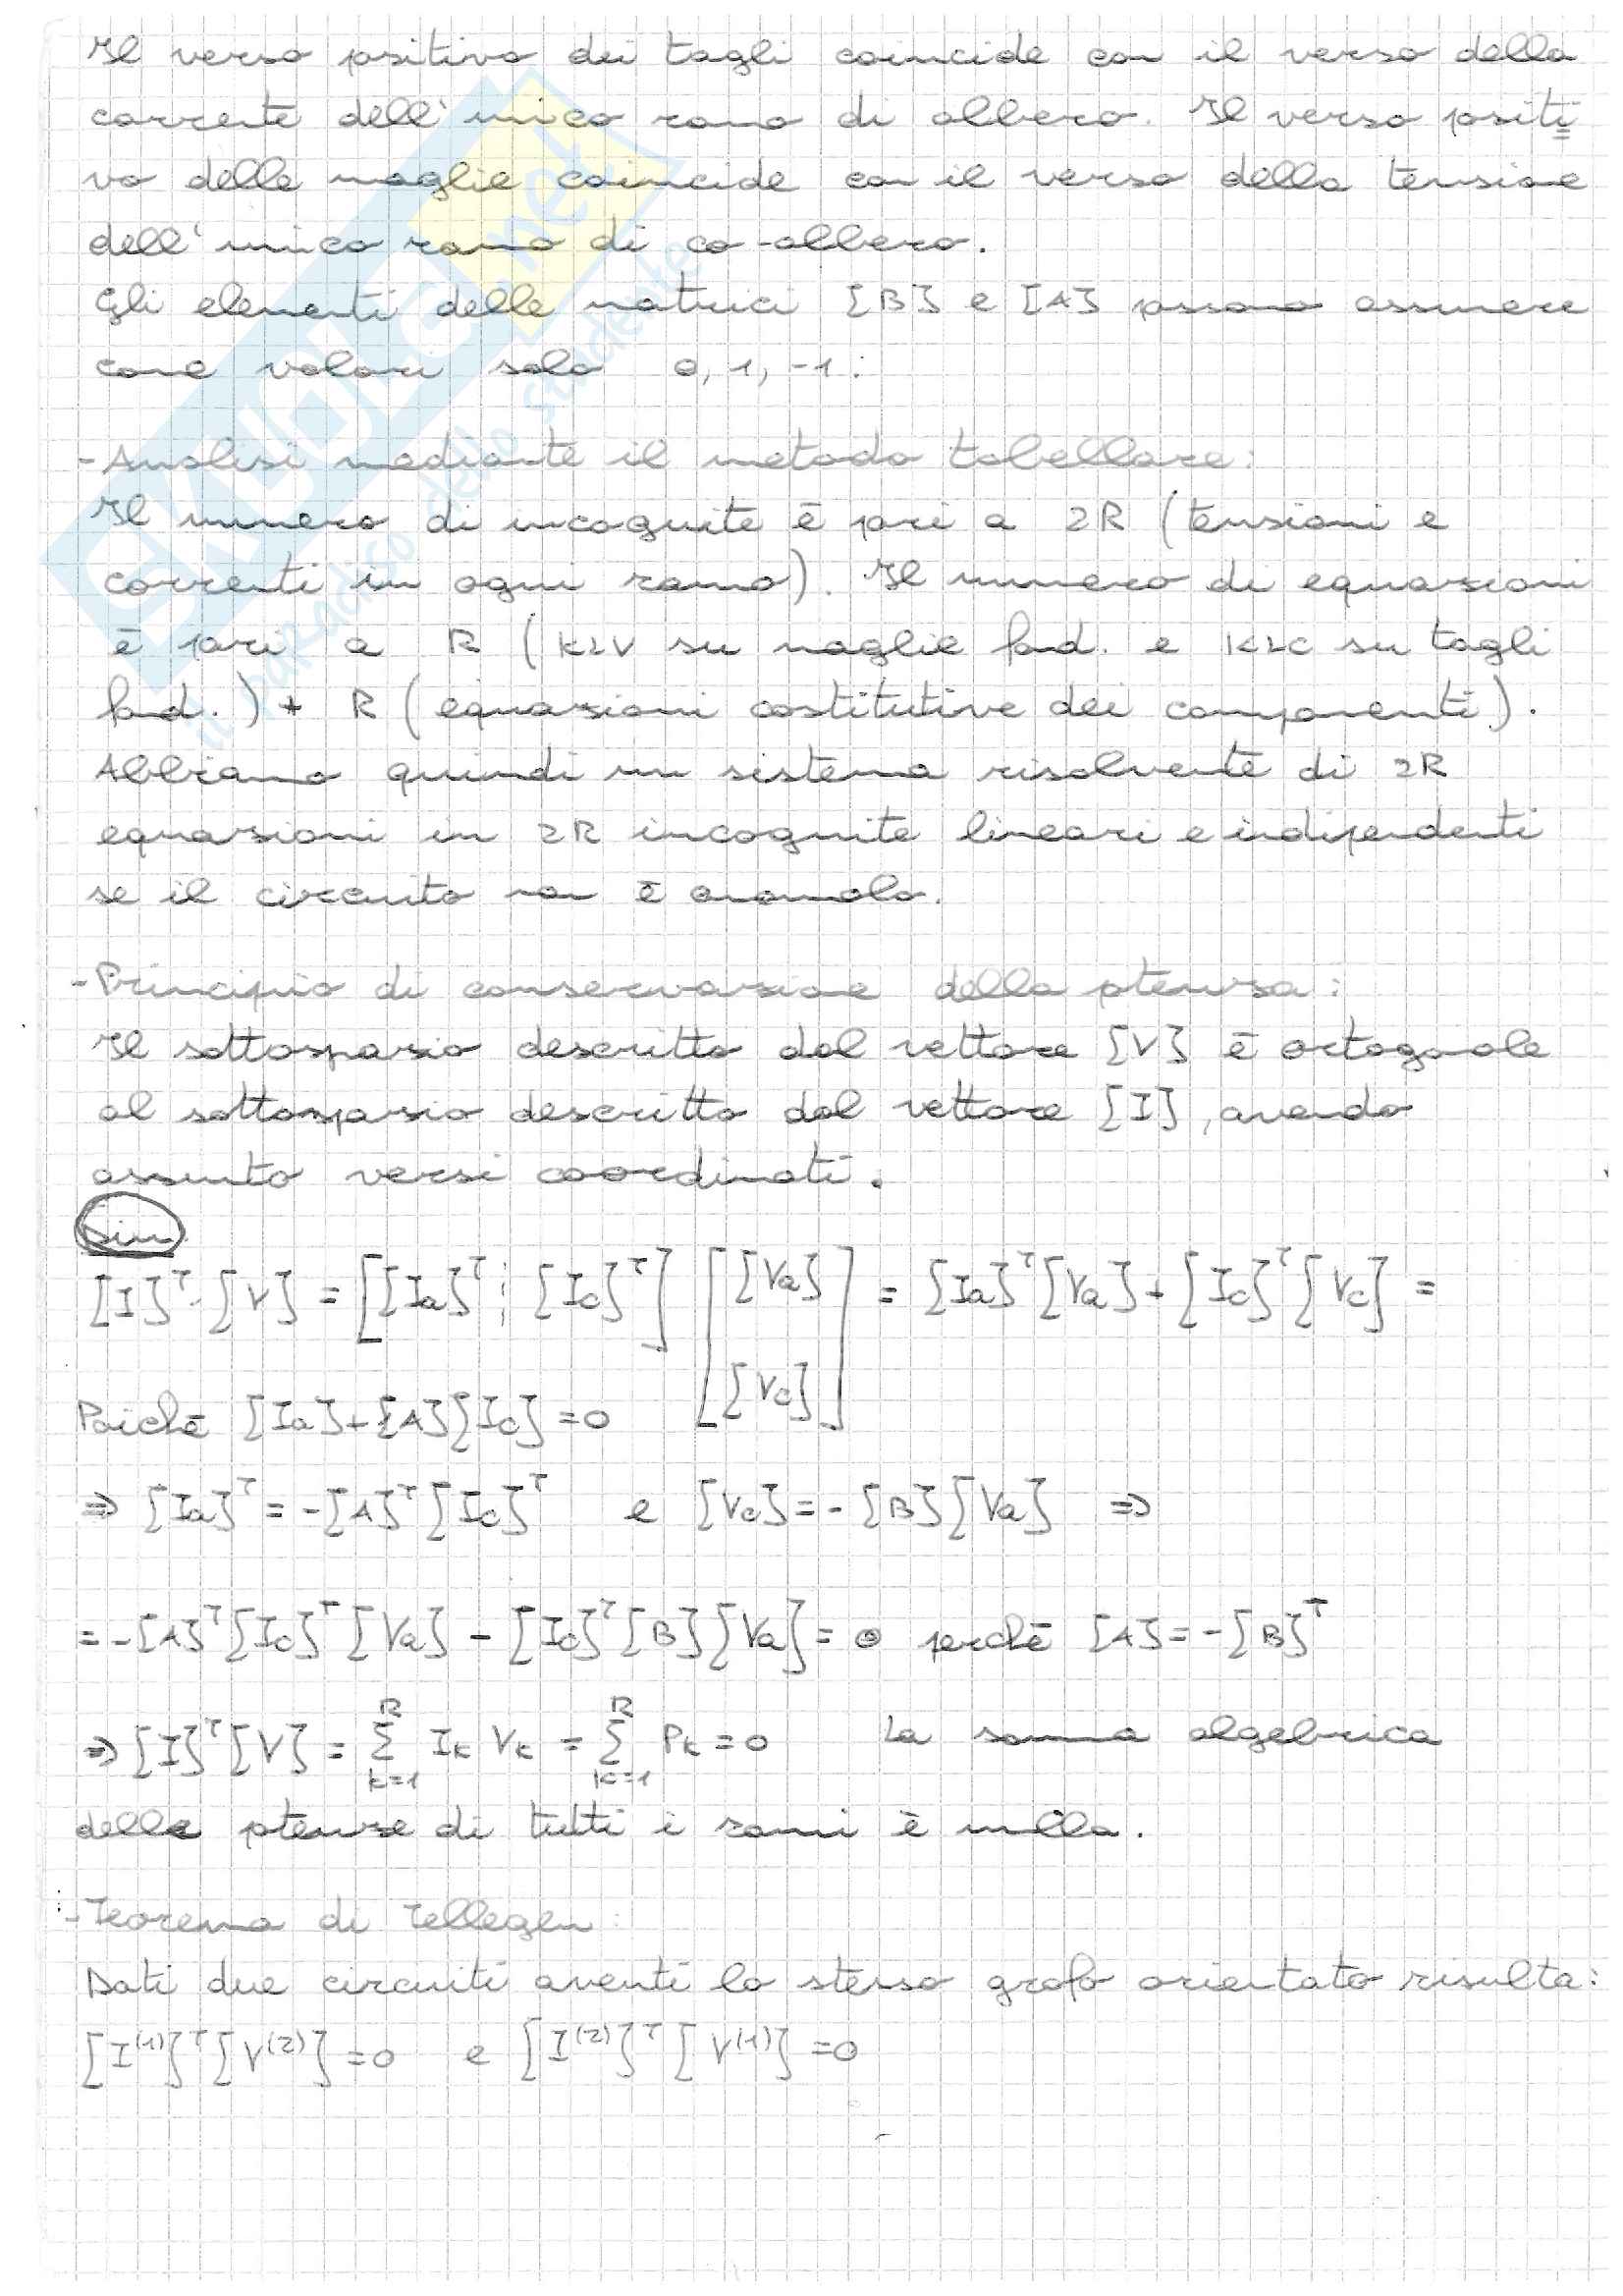 Il verso positivo dei tagli coincide con il verso della
corrente dell'unico ramo di albero. Il verso positi=
vo delle maglie coincide con il verso della tensione
dell'unico ramo di co-albero.
Gli elementi delle matrici [B] e [A] possono assumere
come valori solo 0, 1, -1.
- Analisi mediante il metodo tabellare:
Il numero di incognite è pari a 2R (tensioni e
correnti in ogni ramo). Il numero di equazioni
è pari a R (KLV su maglie fond. e KLC su tagli
fond.) + R (equazioni costitutive dei componenti).
Abbiamo quindi un sistema risolvente di 2R
equazioni in 2R incognite lineari e indipendenti
se il circuito non è anomalo.
- Principio di conservazione della potenza:
Il sottospazio descritto dal vettore [V] è ortogonale
al sottospazio descritto dal vettore [I], avendo
assunto versi coordinati.
Dim.
[I]ᵀ·[V] = [[Ia]ᵀ ¦ [Ic]ᵀ] [[Va] [Vc]] = [Ia]ᵀ[Va] + [Ic]ᵀ[Vc] =
Poichè [Ia]+[A][Ic]=0
⇒ [Ia]ᵀ = -[A]ᵀ[Ic]ᵀ e [Vc] = -[B][Va] ⇒
= -[A]ᵀ[Ic]ᵀ[Va] - [Ic]ᵀ[B][Va] = 0 perchè [A] = -[B]ᵀ
⇒ [I]ᵀ[V] = Σ(k=1→R) Ik Vk = Σ(k=1→R) Pk = 0 La somma algebrica
delle potenze di tutti i rami è nulla.
- Teorema di Tellegen:
Dati due circuiti aventi lo stesso grafo orientato risulta:
[I⁽¹⁾]ᵀ[V⁽²⁾] = 0 e [I⁽²⁾]ᵀ[V⁽¹⁾] = 0
SKUOLA.net
il paradiso dello studente